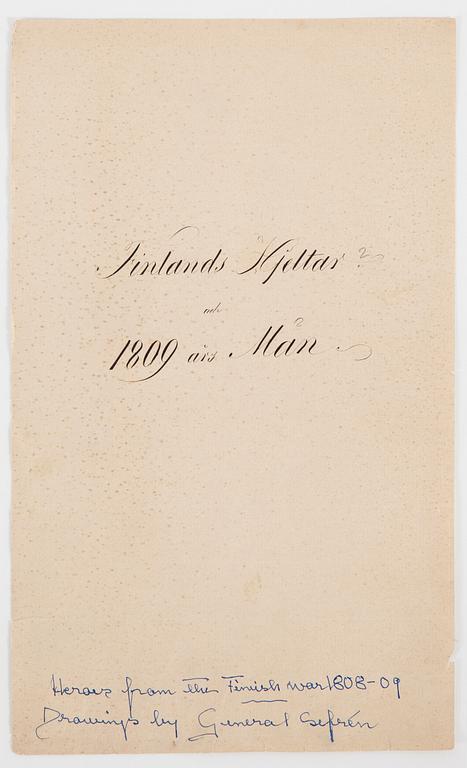 Finlands Hjeltar ?
och
1809 års Män
Heroes from the Finish war 1808-09
Drawings by General Gefrén